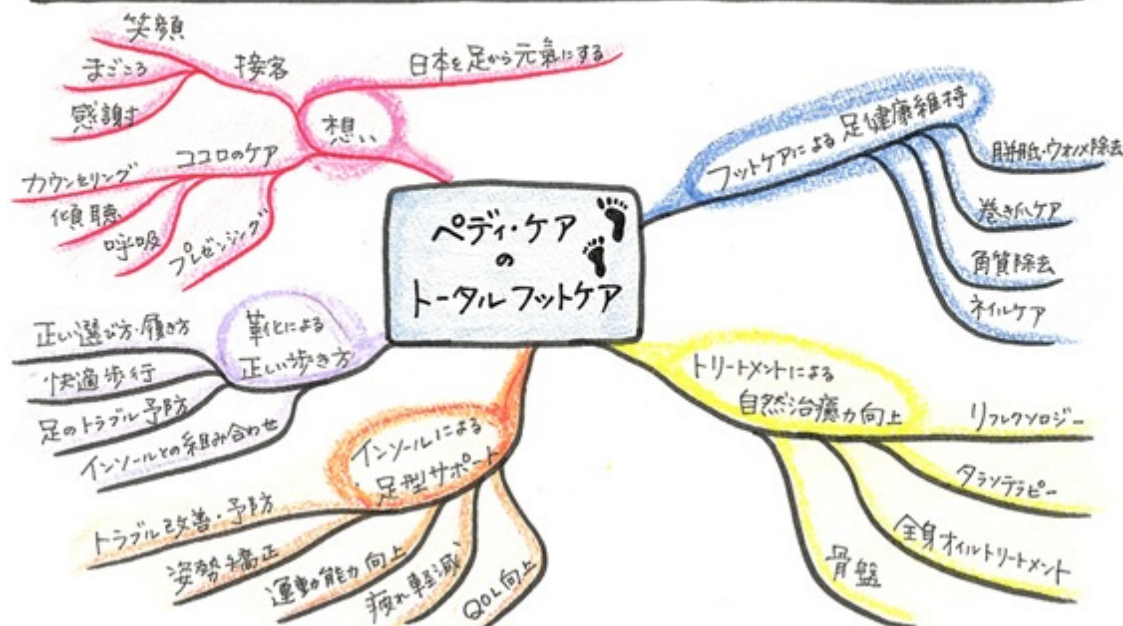 ペディ・ケア
の
トータルフットケア
想い
日本を足から元氣にする
接客
笑顔
まごころ
感謝
ココロのケア
カウンセリング
傾聴
呼吸
プレゼンシング
フットケアによる足健康維持
胼胝・ウオノメ除去
巻き爪ケア
角質除去
ネイルケア
トリートメントによる
自然治癒力向上
リフレクソロジー
タラソテラピー
全身オイルトリートメント
骨盤
インソールによる
足型サポート
トラブル改善・予防
姿勢矯正
運動能力向上
疲れ軽減
QOL向上
靴による
正しい歩き方
正しい選び方・履き方
快適歩行
足のトラブル予防
インソールとの組み合わせ